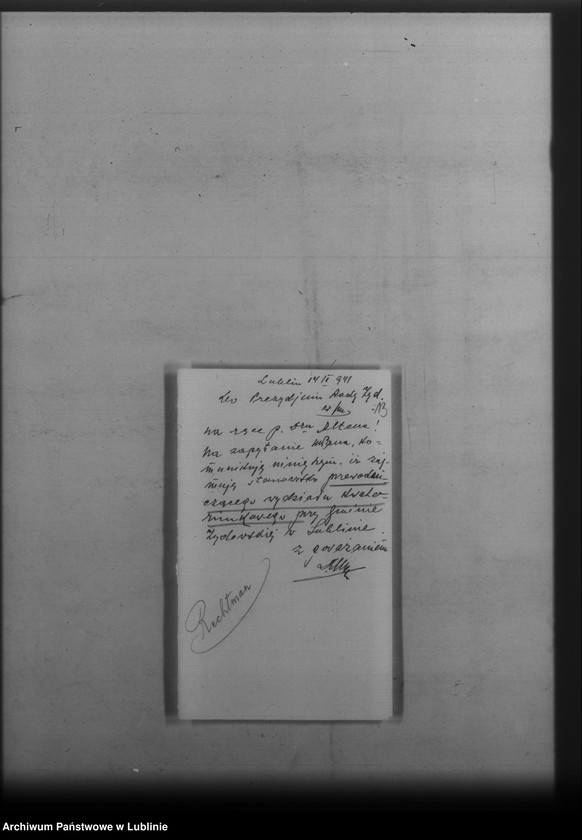 Lublin 14 II 941
Do Prezydjum Rady Żyd.
w/m.
na ręce p. Dra Altena!
Na zapytanie WPana, ko-
munikuję niniejszym, iż zaj-
muję stanowisko przewodni-
czącego wydziału kwate-
runkowego przy Gminie
Żydowskiej w Lublinie.
z poważaniem
Rechtman
Archiwum Państwowe w Lublinie